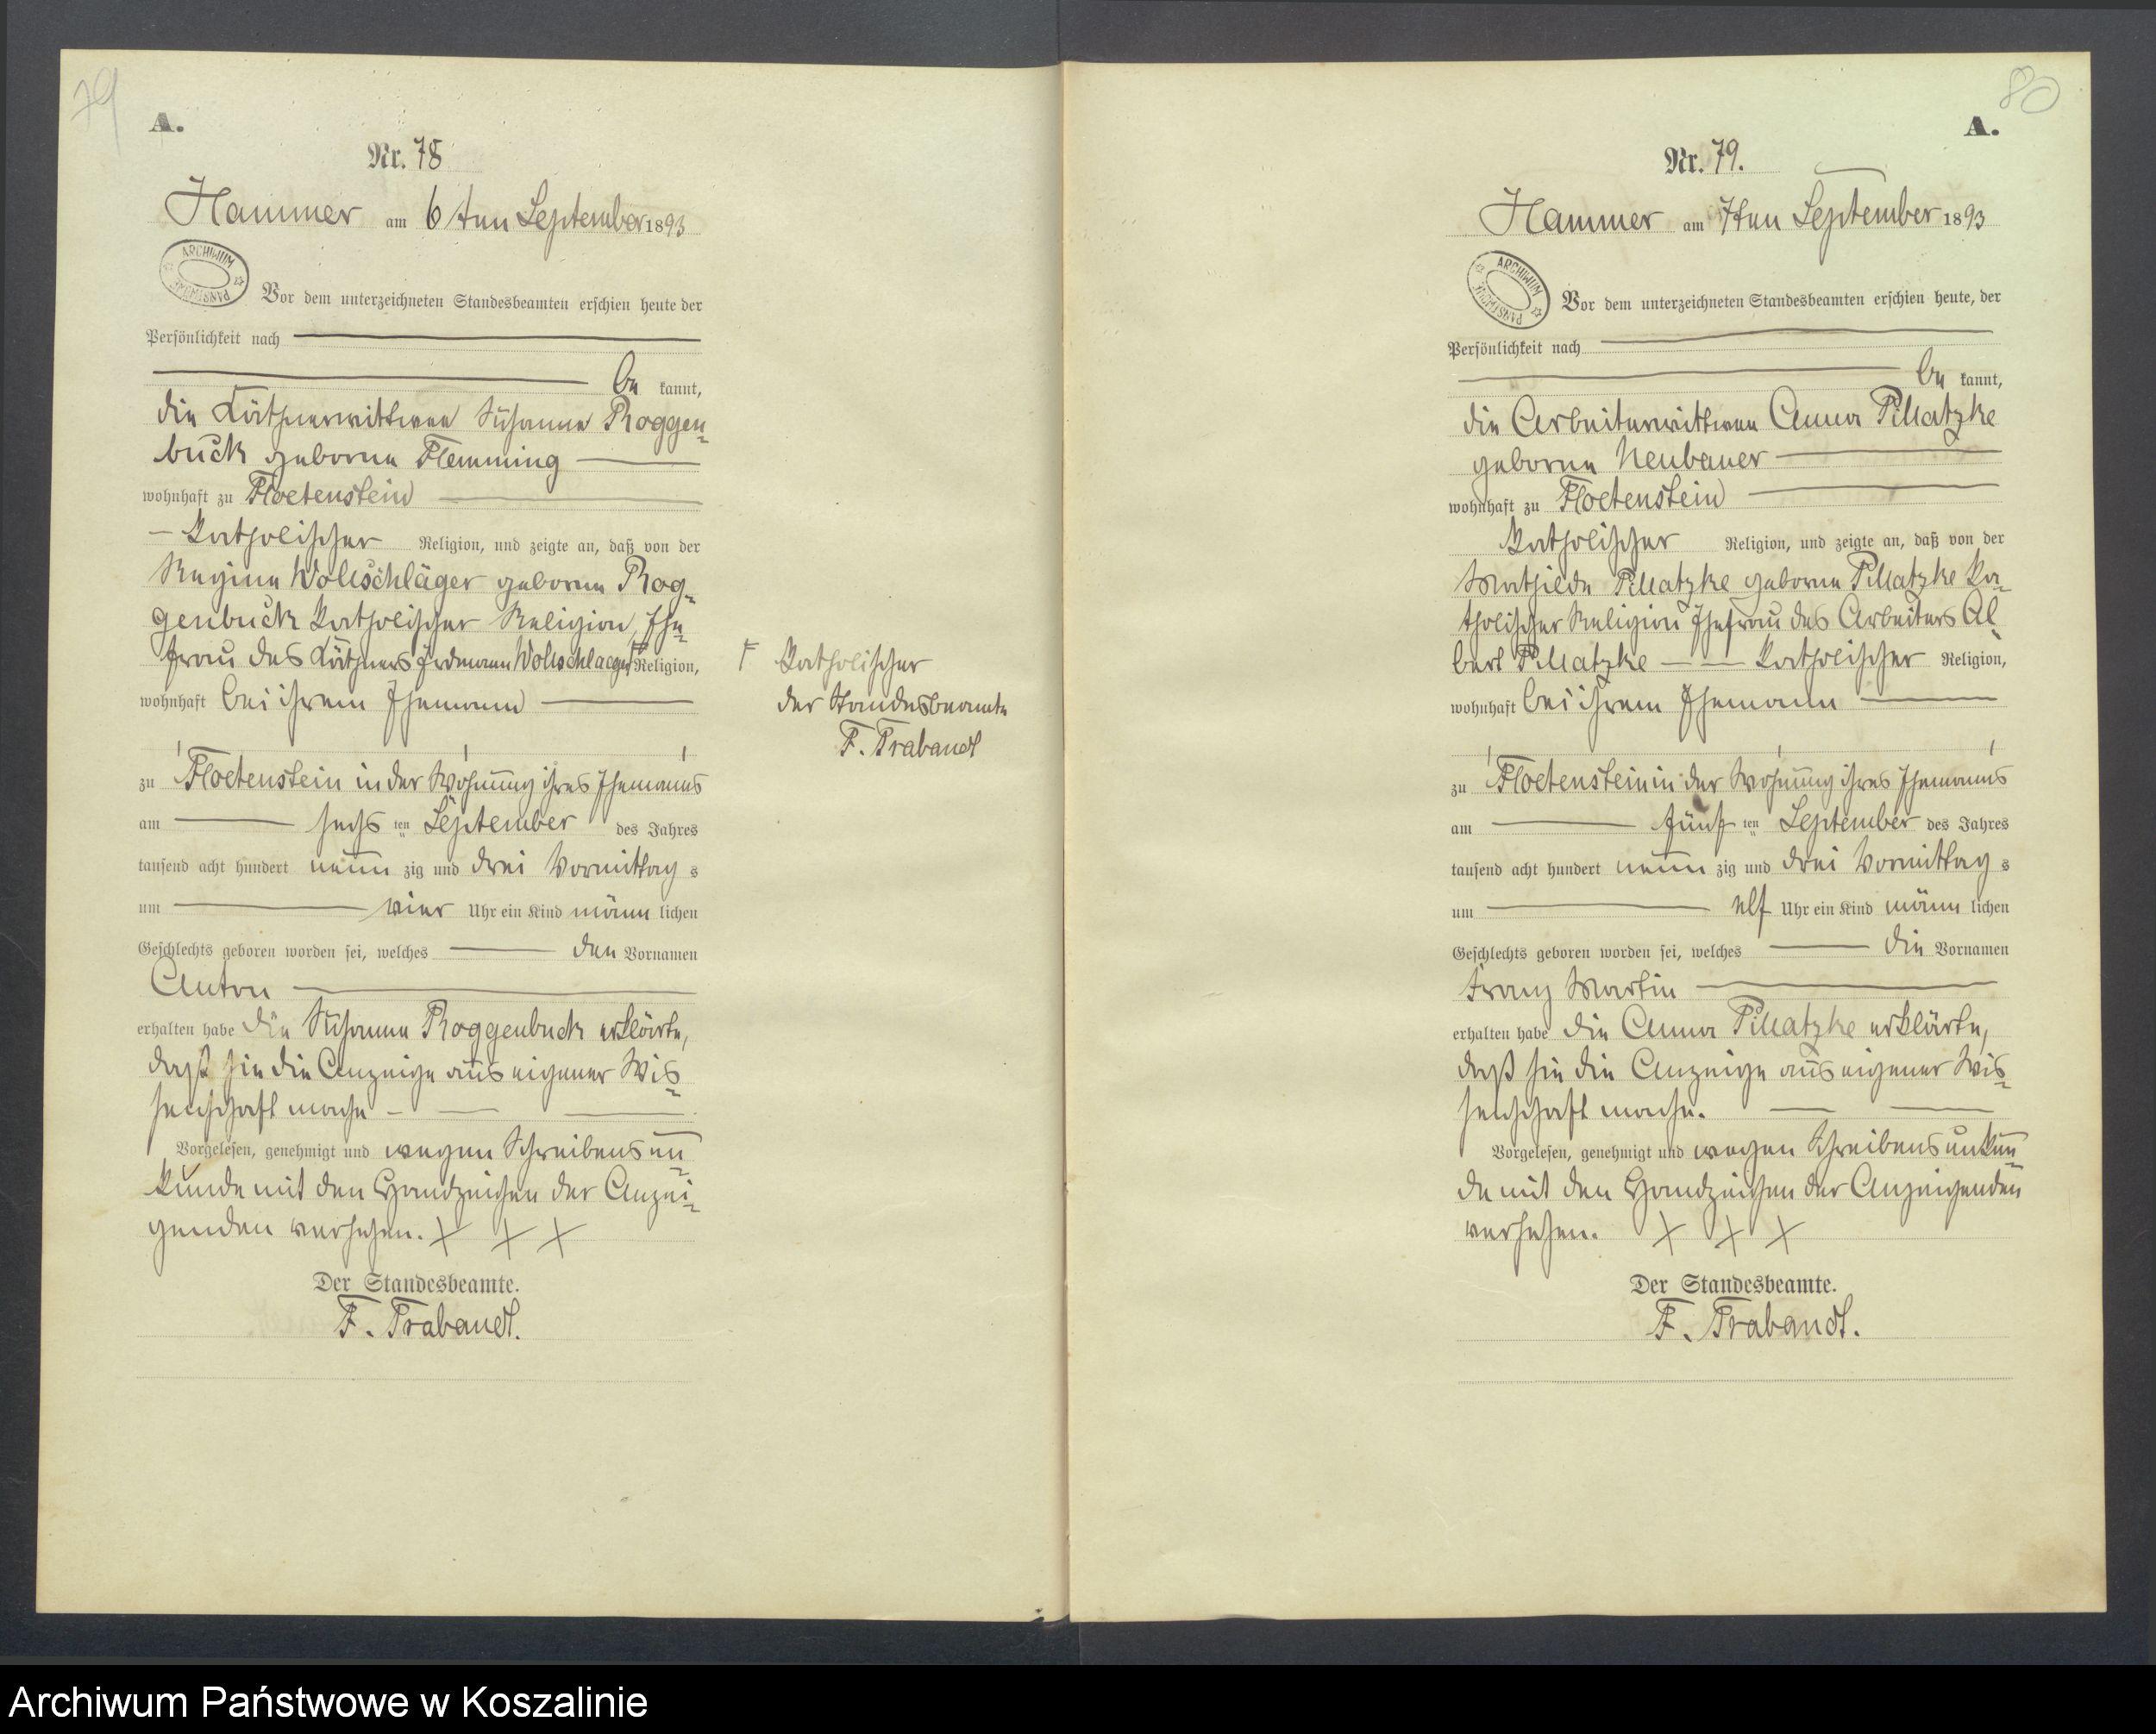 79
A.
Nr. 78
Hammer am 6ten September 1893
ARCHIWUM PAŃSTWOWE
Vor dem unterzeichneten Standesbeamten erschien heute der
Persönlichkeit nach
be kannt,
die Käthnerwittwe Susanna Roggen-
buck geborne Flemming
wohnhaft zu Floetenstein
katholischer Religion, und zeigte an, daß von der
Regina Wollschläger geborne Rog-
genbuck katholischer Religion, Ehe-
frau des Käthners Erdmann Wollschlaeger Ⱶ Religion,
wohnhaft bei ihrem Ehemann
zu Floetenstein in der Wohnung ihres Ehemanns
am sechs ten September des Jahres
tausend acht hundert neun zig und drei Vormittag s
um vier Uhr ein Kind männ lichen
Geschlechts geboren worden sei, welches den Vornamen
Anton
erhalten habe die Susanna Roggenbuck erklärte,
daß sie die Anzeige aus eigener Wis-
senschaft mache
Vorgelesen, genehmigt und wegen Schreibensun-
kunde mit den Handzeichen der Anzei-
genden versehen. X X X
Der Standesbeamte.
F. Trabandt.
Ⱶ katholischer
der Standesbeamte
F. Trabandt
80
A.
Nr. 79.
Hammer am 7ten September 1893
ARCHIWUM PAŃSTWOWE
Vor dem unterzeichneten Standesbeamten erschien heute, der
Persönlichkeit nach
be kannt,
die Arbeiterwittwe Anna Pillatzke
geborne Neubauer
wohnhaft zu Floetenstein
katholischer Religion, und zeigte an, daß von der
Mathilde Pillatzke geborne Pillatzke ka-
tholischer Religion Ehefrau des Arbeiters Al-
bert Pillatzke katholischer Religion,
wohnhaft bei ihrem Ehemann
zu Floetenstein in der Wohnung ihres Ehemanns
am fünf ten September des Jahres
tausend acht hundert neun zig und drei Vormittag s
um elf Uhr ein Kind männ lichen
Geschlechts geboren worden sei, welches die Vornamen
Franz Martin
erhalten habe die Anna Pillatzke erklärte,
daß sie die Anzeige aus eigener Wis-
senschaft mache.
Vorgelesen, genehmigt und wegen Schreibensunkun-
de mit den Handzeichen der Anzeigenden
versehen. X X X
Der Standesbeamte.
F. Trabandt.
Archiwum Państwowe w Koszalinie